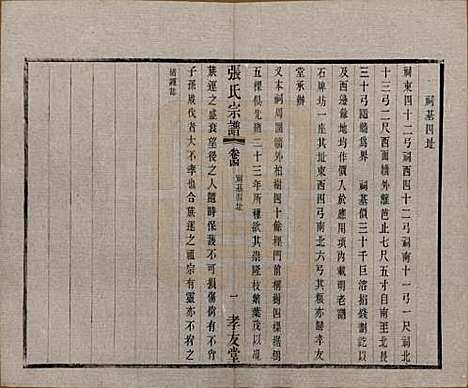 祠基四址
祠東四十二弓祠西四十二弓祠南十一弓一尺祠北
十三弓二尺西北牆外籬笆止七尺五寸自南至北長
三十弓隨牆爲界　祠基價三十千巨濤捐錢劃訖以
及西邊餘地均作價入於應用項內載明老譜
石牌坊一座其址東西四弓南北六弓其糧亦歸孝友
堂承辦
又本祠周圍牆外柏樹四十餘棵門前楊樹四棵槐樹
五棵俱光緒二十三年所種欲其崇隆枝繁葉茂以觀
族運之盛衰望後之人隨時保護不可損傷倘有不肖
子孫戕伐者大不孝也合族運之通宗有靈亦不宥之
謹誌
張氏宗譜
卷四
祠基四址
一
孝友堂